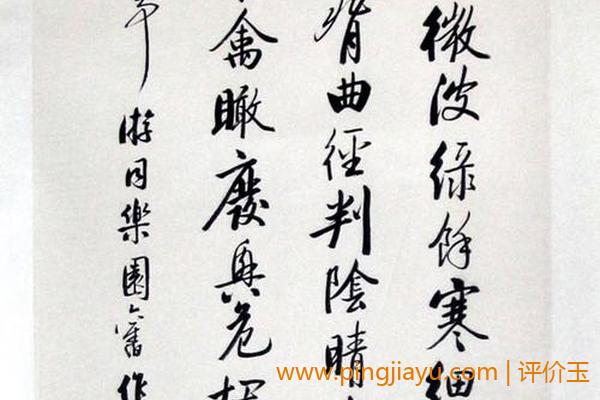 微波綠餘寒細
曲徑判陰晴
禽瞰廢興危
游同樂園舊作
www.pingjiayu.com | 评价玉